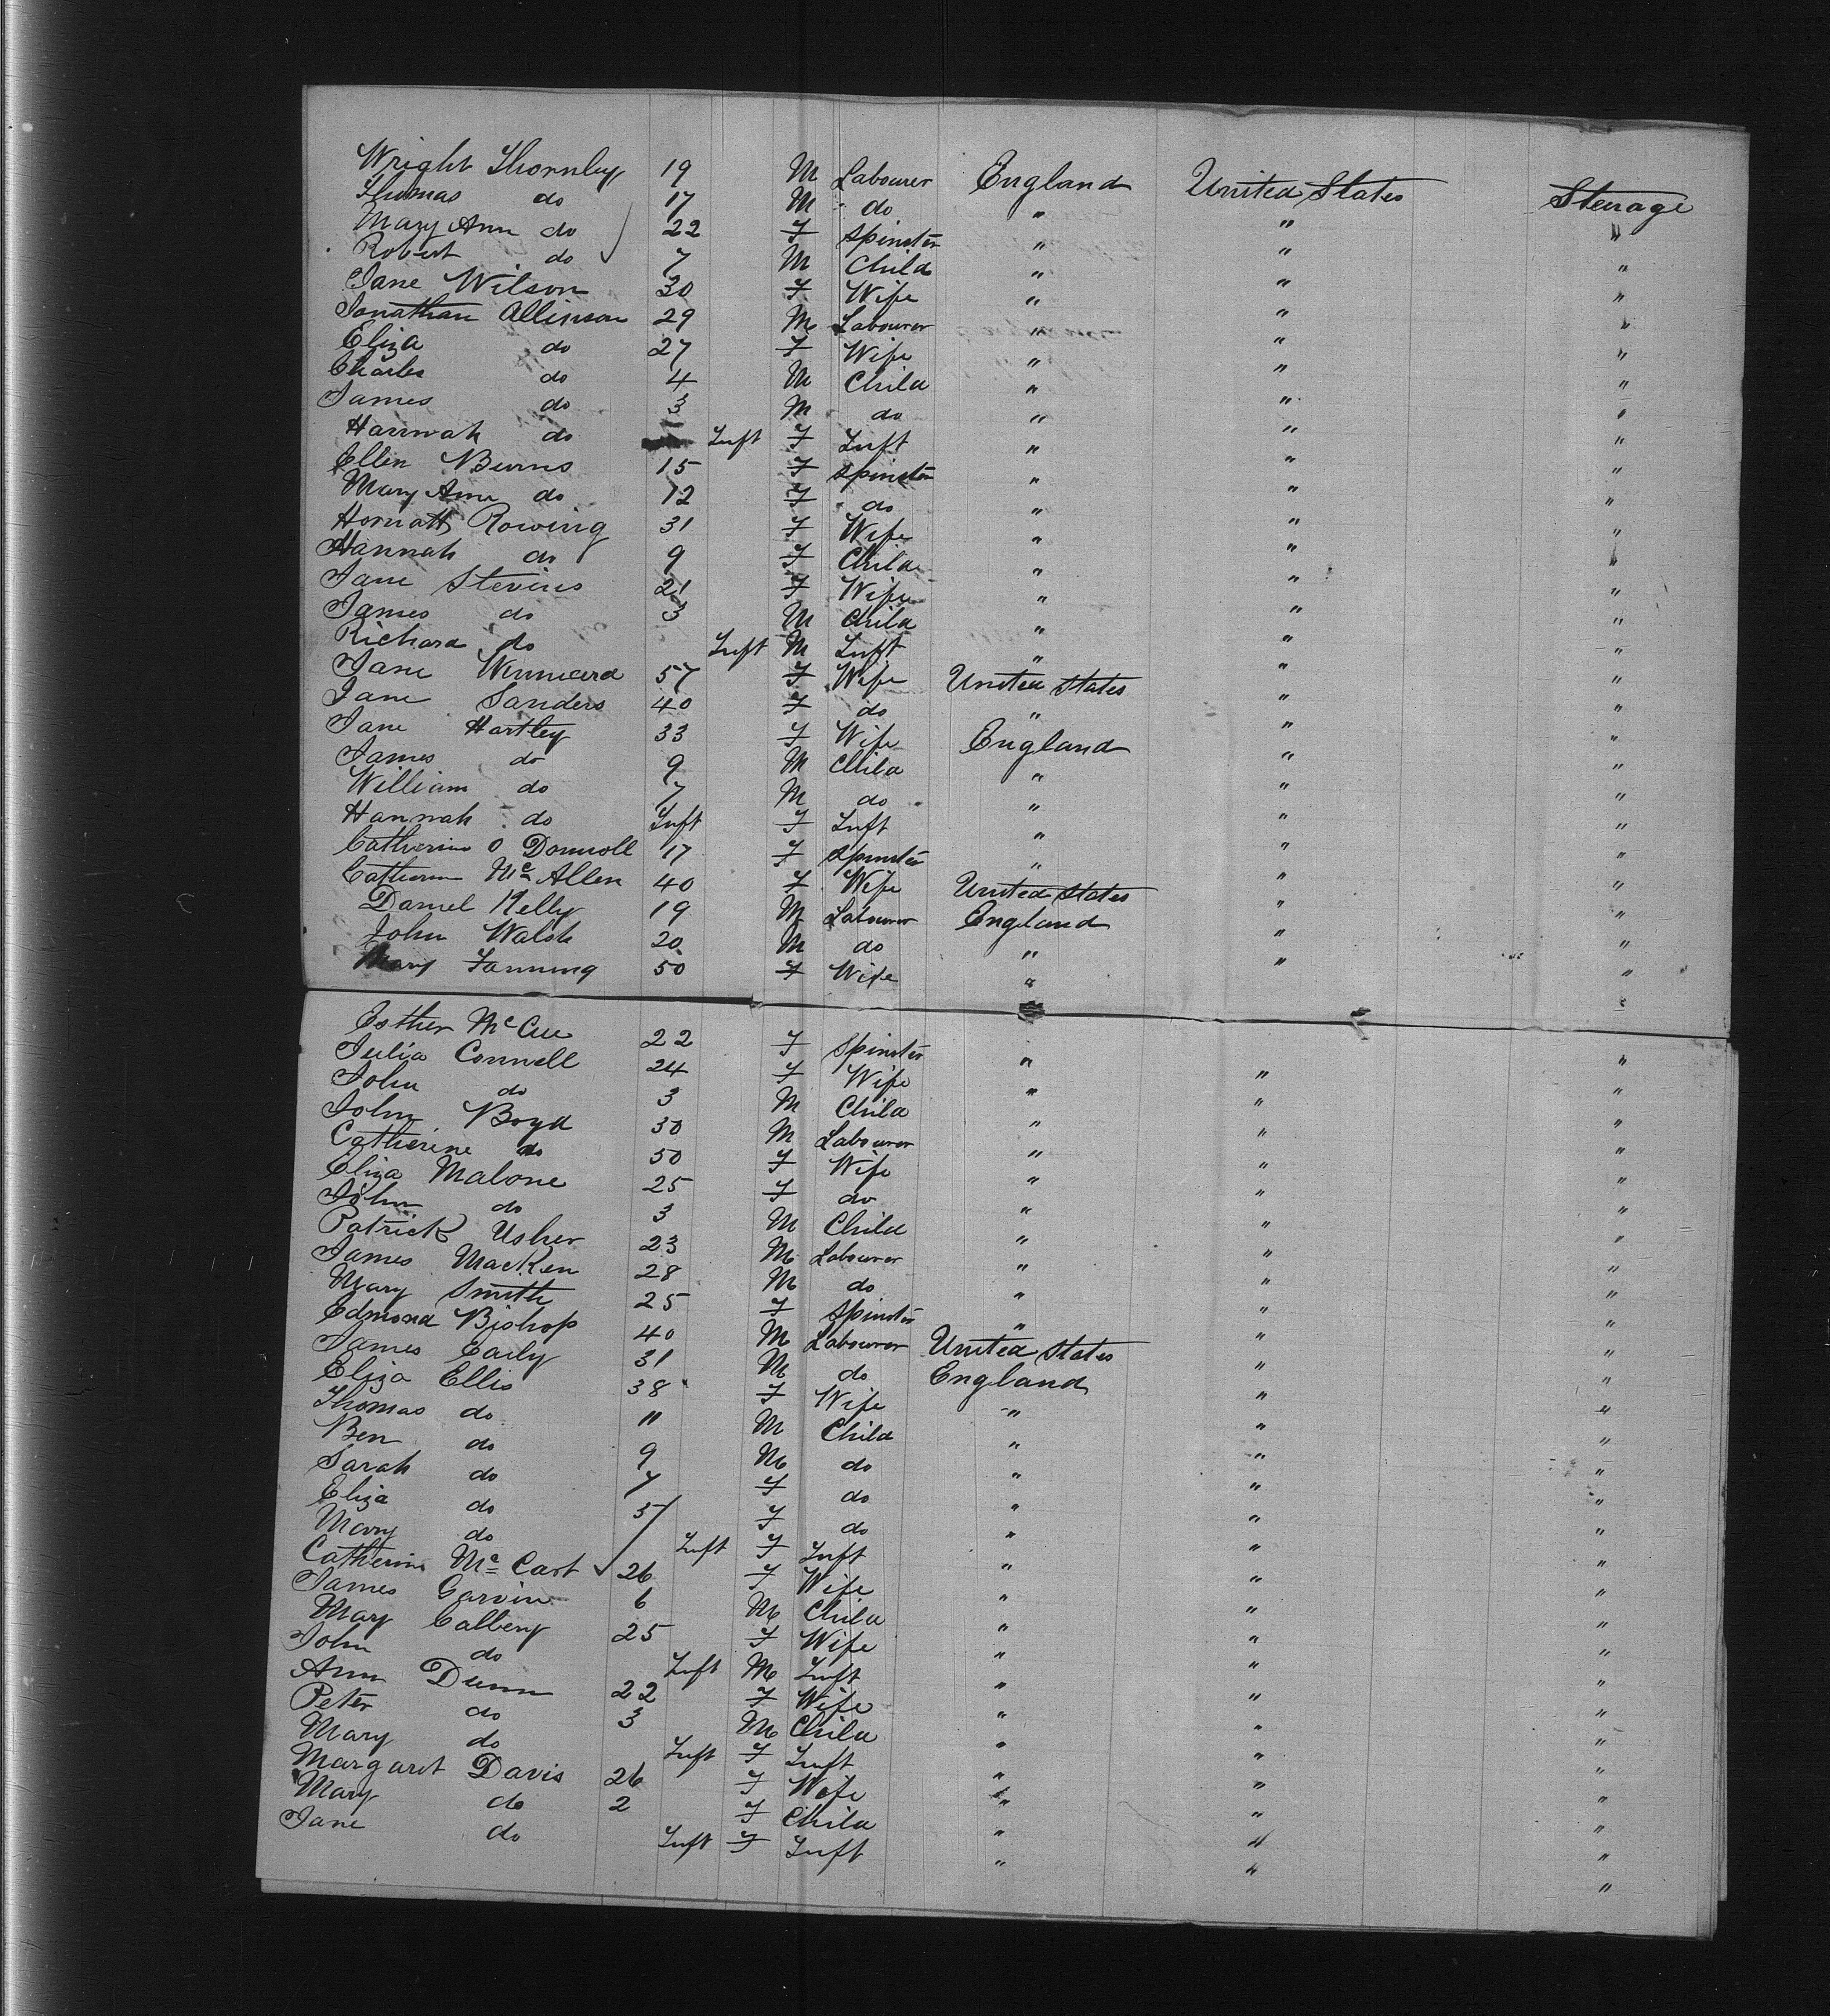 Wright Thornley 19 M Labourer England United States Sterage
Thomas do 17 M do " " "
Mary Ann do 22 F Spinster " " "
Robert do 7 M Child " " "
Jane Wilson 30 F Wife " " "
Jonathan Allinson 29 M Labourer " " "
Eliza do 27 F Wife " " "
Charles do 4 M Child " " "
James do 3 M do " " "
Hannah do Inft F Inft " " "
Ellen Burns 15 F Spinster " " "
Mary Ann do 12 F do " " "
Rowing 31 F Wife " " "
Hannah do 9 F Child " " "
Jane Stevens 21 F Wife " " "
James do 3 M Child " " "
Richard do Inft M Inft " " "
Jane 57 F Wife United States " "
Jane Sanders 40 F do " " "
Jane Hartley 33 F Wife England " "
James do 9 M Child " " "
William do 7 M do " " "
Hannah do Inft F Inft " " "
Catherine O Donnoll 17 F Spinster " " "
Catherine Mc Allen 40 F Wife United States " "
Daniel Kelly 19 M Labourer England " "
John Walsh 20 M do " " "
Mary Fanning 50 F Wife " "
Esther McCue 22 F Spinster " "
Julia Connell 24 F Wife " " "
John do 3 M Child " " "
John Boyd 30 M Labourer " " "
Catherine do 50 F Wife " " "
Eliza Malone 25 F do " " "
John do 3 M Child " " "
Patrick Usher 23 M Labourer " " "
James MacKen 28 M do " " "
Mary Smith 25 F Spinster " " "
Edmond Bishop 40 M Labourer United States " "
James Eaily 31 M do England " "
Eliza Ellis 38 F Wife " " "
Thomas do 11 M Child " " "
Ben do 9 M do " " "
Sarah do 7 F do " " "
Eliza do 5 F do " " "
Mary do Inft F Inft " " "
Catherine Mc Cart 26 F Wife " " "
James Garvin 6 M Child " " "
Mary Calbery 25 F Wife " " "
John do Inft M Inft " " "
Ann Dunn 22 F Wife " " "
Peter do 3 M Child " " "
Mary do Inft F Inft " " "
Margaret Davis 26 F Wife " " "
Mary do 2 F Child " " "
Jane do Inft F Inft " " "